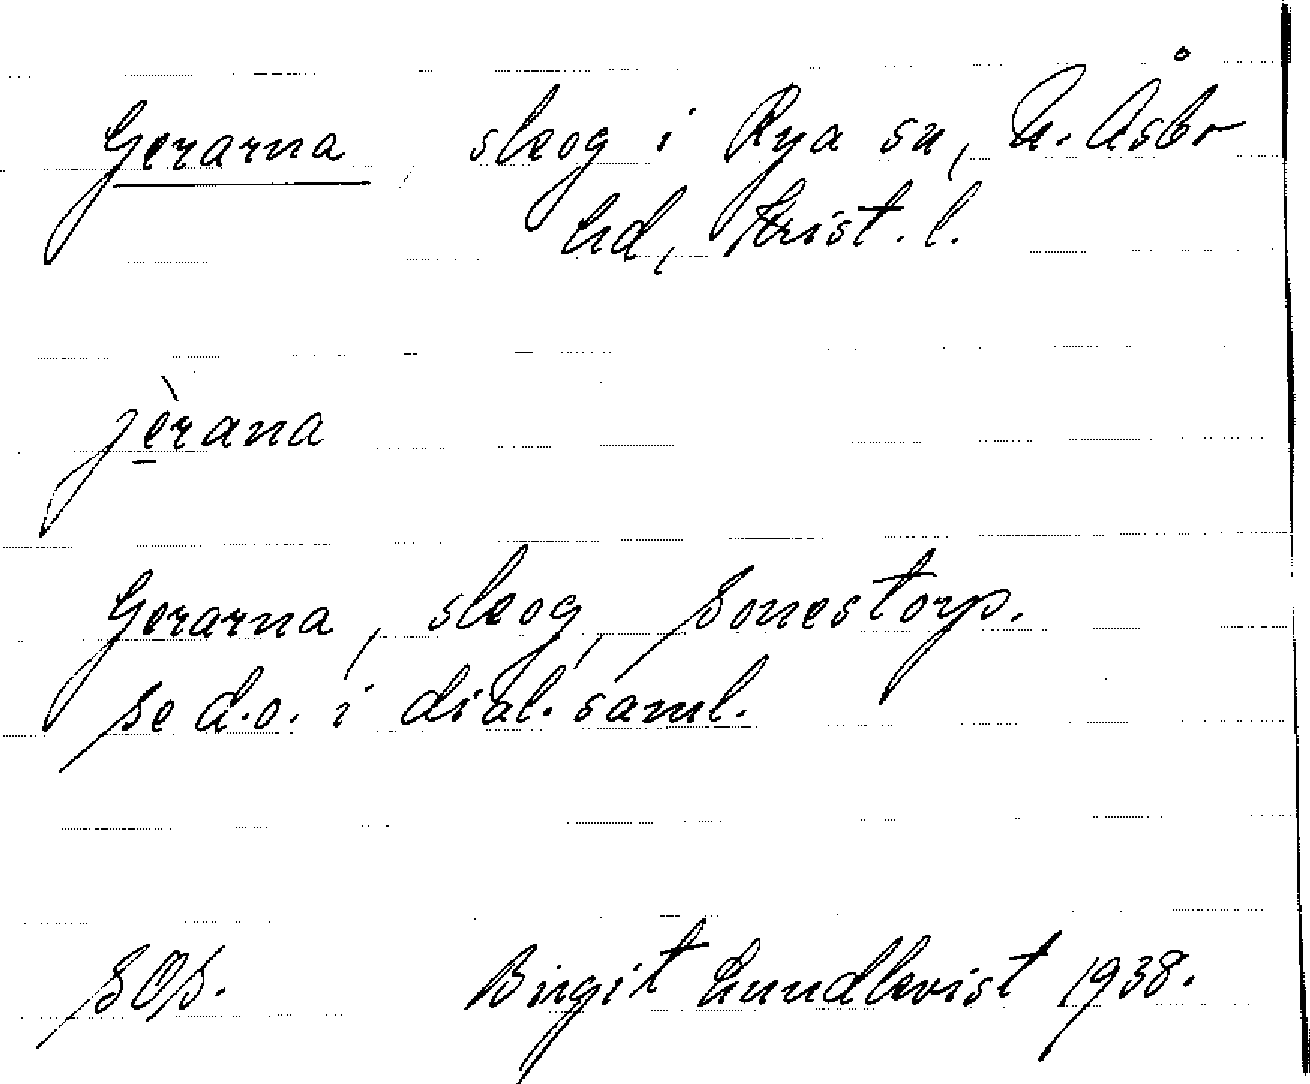 Gerarna, skog i Rya sn, N. Åsbo
hd, Krist. l.
jèrana
Gerarna, skog, Sonestorp.
Se d.o. i dial. saml.
SOS. Birgit Lundkvist 1938.